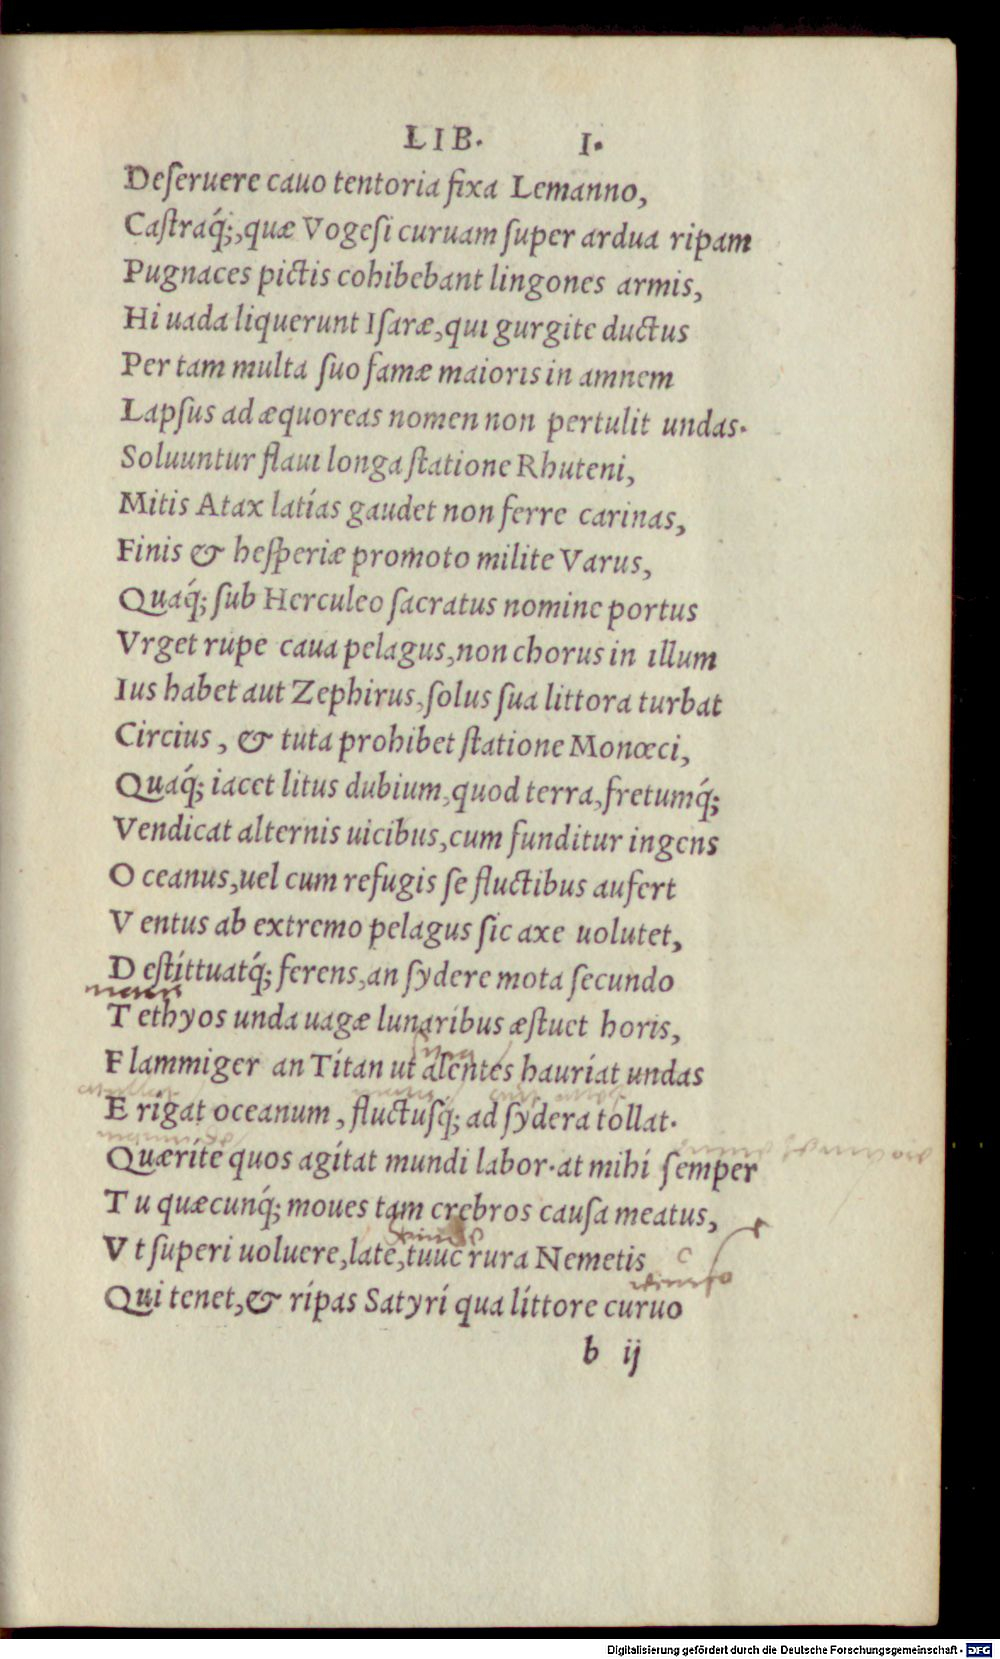 LIB. I.
Deſeruere cauo tentoria fixa Lemanno,
Caſtraq́;, quæ Vogeſi curuam ſuper ardua ripam
Pugnaces pictis cohibebant lingones armis,
Hi uada liquerunt Iſaræ, qui gurgite ductus
Per tam multa ſuo famæ maioris in amnem
Lapſus ad æquoreas nomen non pertulit undas.
Soluuntur flaui longa ſtatione Rhuteni,
Mitis Atax latías gaudet non ferre carinas,
Finis & heſperiæ promoto milite Varus,
Quaq́; ſub Herculeo ſacratus nomine portus
Vrget rupe caua pelagus, non chorus in illum
Ius habet aut Zephirus, ſolus ſua littora turbat
Circius, & tuta prohibet ſtatione Monœci,
Quaq́; iacet litus dubium, quod terra, fretumq́;
Vendicat alternis uicibus, cum funditur ingens
O ceanus, uel cum refugis ſe fluctibus aufert
V entus ab extremo pelagus ſic axe uolutet,
D eſtíttuatq́; ferens, an ſydere mota ſecundo
T ethyos unda uagæ lunaribus æſtuet horis,
F lammiger an Títan ut alentes hauríat undas
E rigat oceanum, fluctuſq́; ad ſydera tollat.
Quæríte quos agítat mundi labor. at mihí ſemper
T u quæcunq́; moues tam crebros cauſa meatus,
V t ſuperi uoluere, late, tuuc rura Nemetis
Qui tenet, & ripas Satyrí qua líttore curuo
b ij
Digitalisierung gefördert durch die Deutsche Forschungsgemeinschaft - DFG